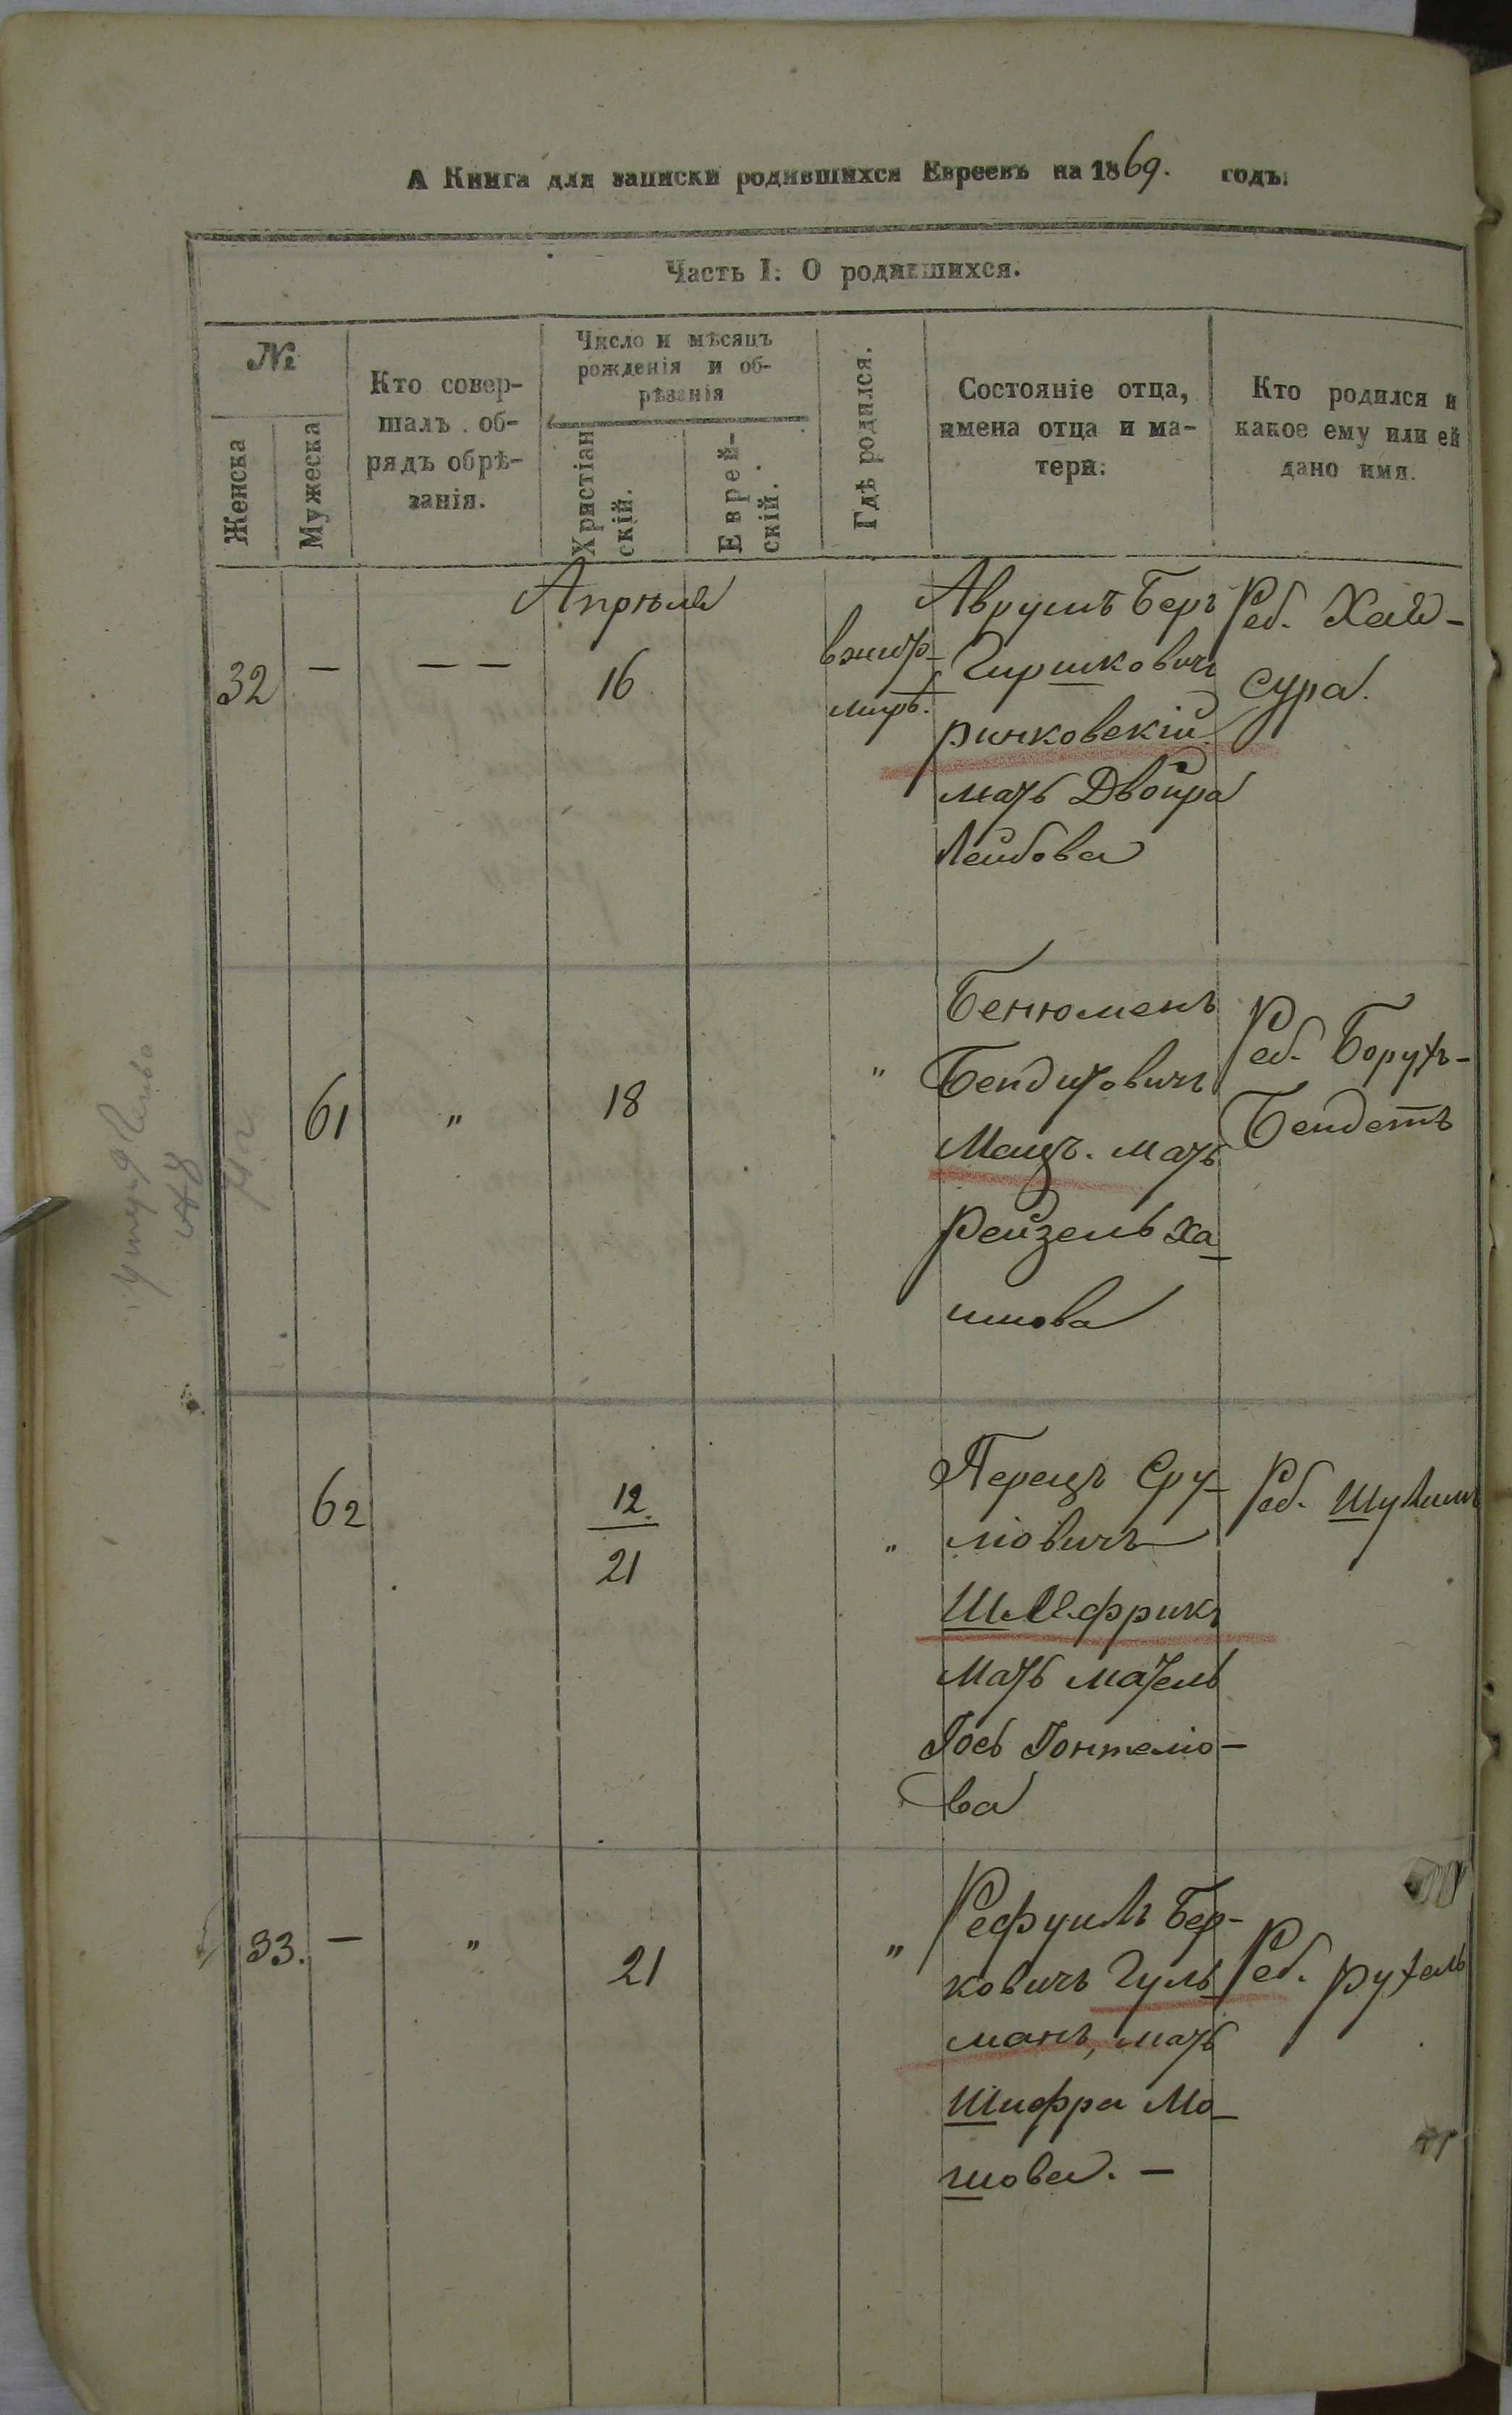 А Книга для записки родившихся Евреевъ на 1869. годъ.
Часть I. О родившихся.
№
Женска
Мужеска
Кто совер-
шалъ об-
рядъ обрѣ-
занія.
Число и мѣсяцъ
рожденія и об-
рѣзанія
Христіан
скій.
Еврей-
скій.
Гдѣ родился.
Состояніе отца,
имена отца и ма-
тери.
Кто родился и
какое ему или ей
дано имя.
Апрѣля
32 — — — 16
Аврумъ Беръ
Гиршковичъ
Ринковскій
мать Двойра
Лейбова
Реб. Хая-
Сура.
61 " 18 "
Бенюменъ
Бендитовичъ
Мацъ. мать
Рейзель Ха
имова
Реб. Борухъ-
Бендетъ
62
12.
21
"
Перецъ Сру-
лiовичъ
мать
ва
Реб.
33. — " 21 "
Рефуилъ Бер-
ковичъ Гуль
манъ, мать
Шифра Мо
шова. —
Реб. Рухель